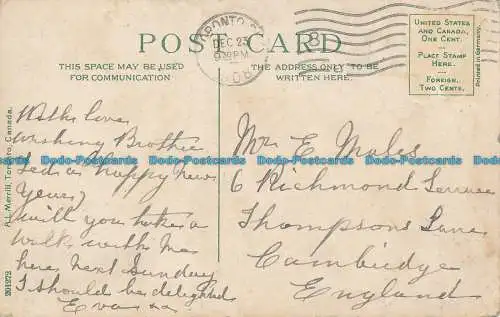 POST CARD
TORONTO
DEC 23
9 PM
THIS SPACE MAY BE USED
FOR COMMUNICATION
THE ADDRESS ONLY TO BE
WRITTEN HERE.
UNITED STATES
AND CANADA,
ONE CENT.
PLACE STAMP
HERE.
FOREIGN,
TWO CENTS.
Printed in Germany.
A. L. Merrill, Toronto, Canada.
291272
With love
wishing Brother
Ted a happy new
Year,
will you take a
walk with me
here next Sunday
I should be delighted
Eva xx
Mr E Males
6 Richmond Terrace
Thompsons Lane
Cambridge
England
Dodo-Postcards Dodo-Postcards Dodo-Postcards Dodo-Postcards Dodo-Postcards